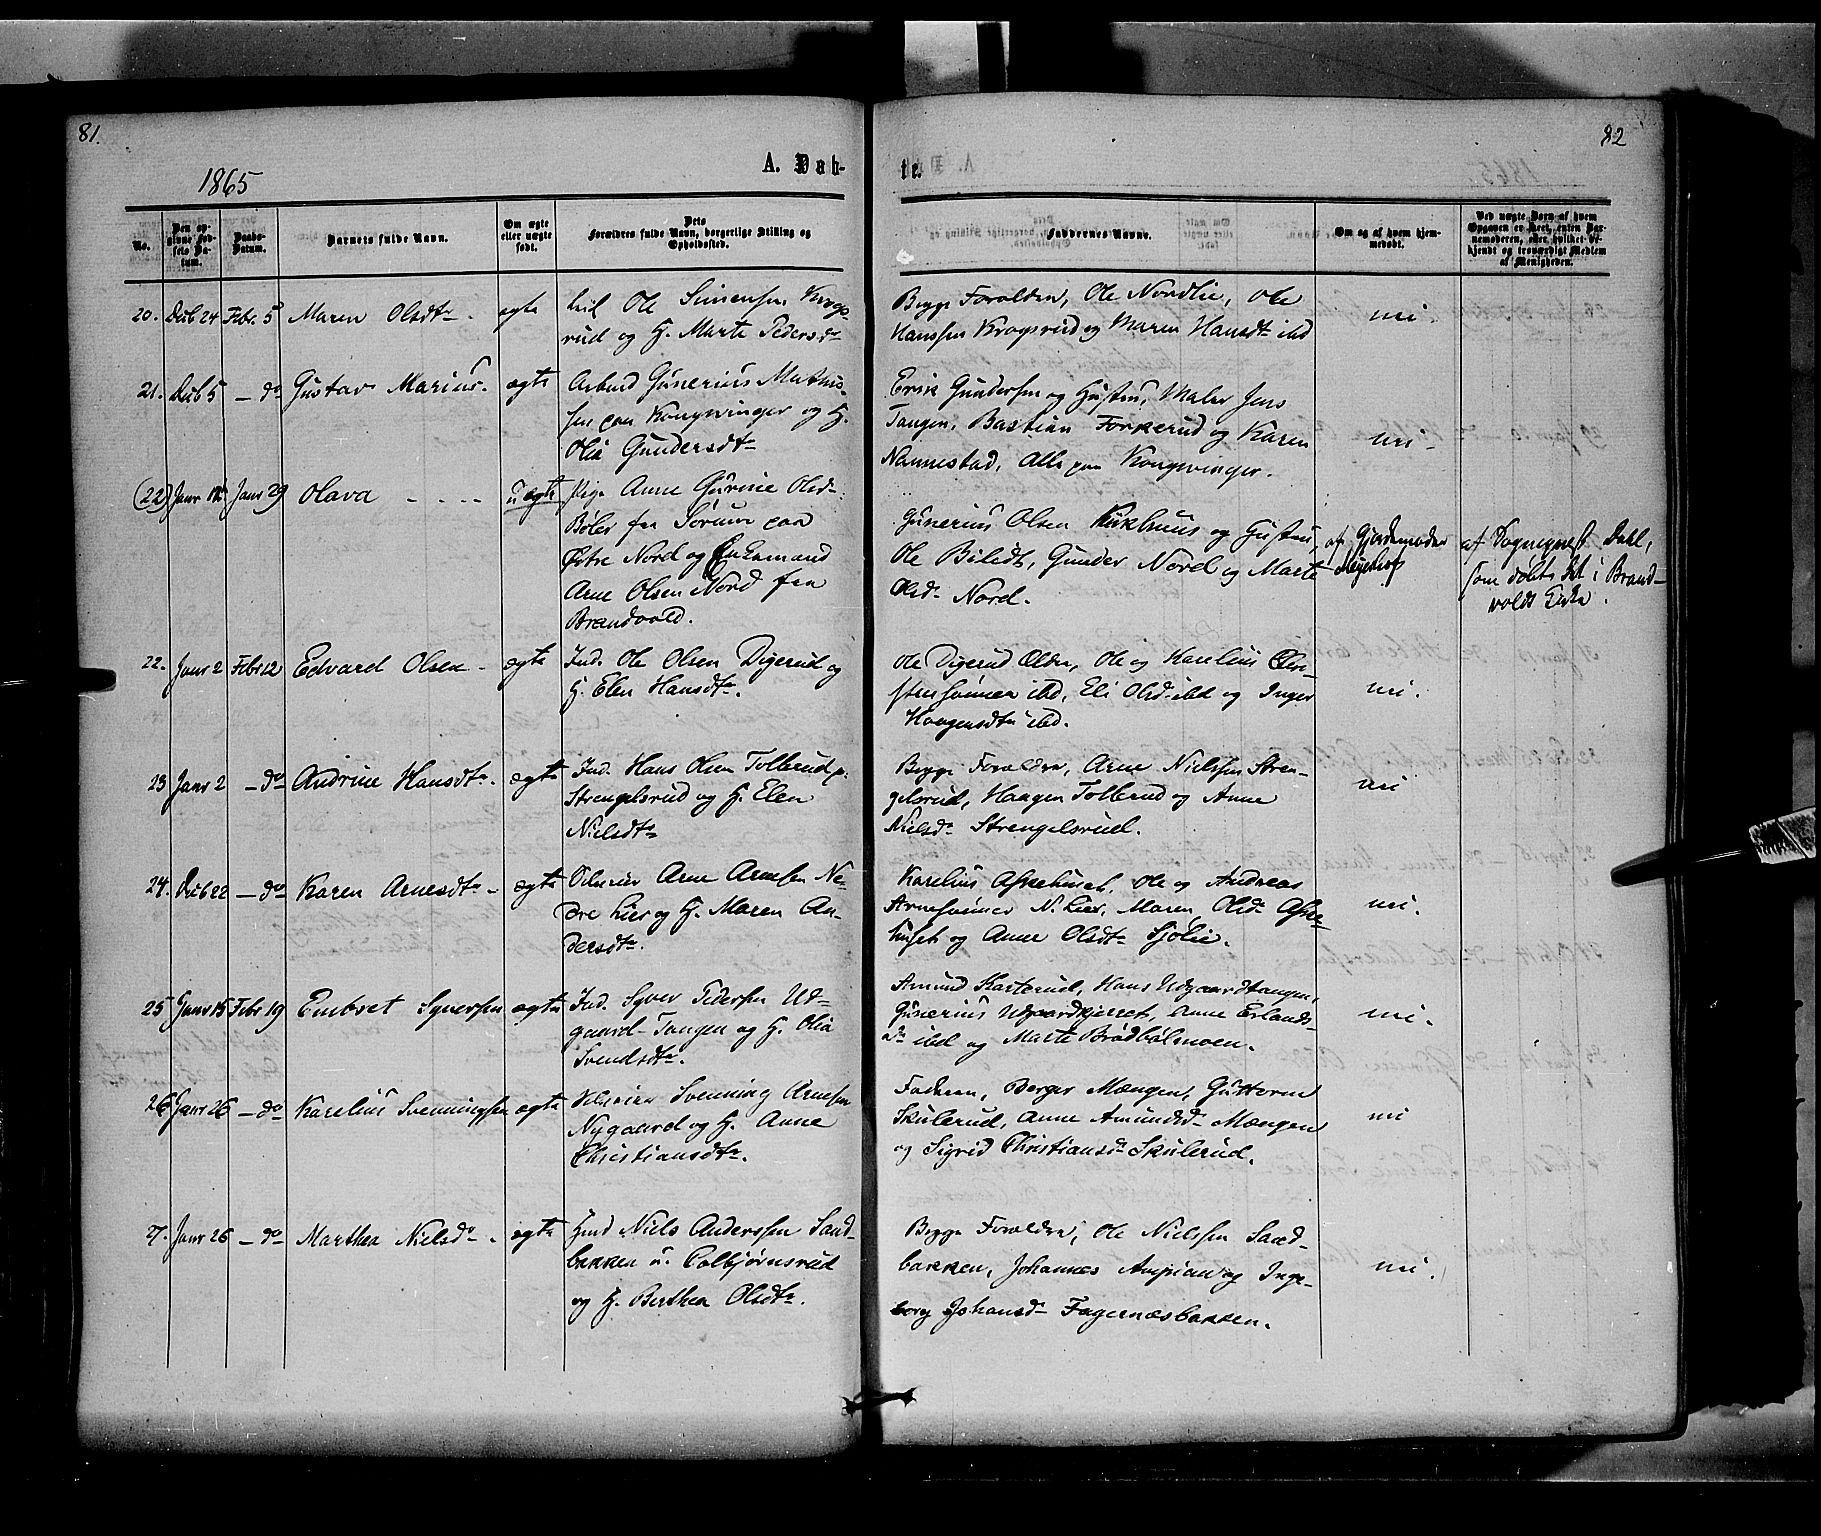 81.
82
1865
A. Døb-
te.
No.
Den op-
givne Fød-
sels Da-
tum.
Daabs-
Datum.
Barnets fulde Navn.
Om ægte
eller uægte
født.
Dets
Forældres fulde Navn, borgerlige Stilling og
Opholdsted.
Faddernes Navne.
Om og af hvem hjem-
medøbt.
Ved uægte Barn af hvem
Opgaven er skeet, enten Bar-
nemoderen, eller hvilket be-
kjendt og troværdigt Medlem
af Menigheden.
20. Decb 24 Febr. 5 Maren Olsdtr. ægte Ole Simensen Krogs-
rud og H. Marte Pedersdr
Begge Foraldre, Ole Nordlie, Ole
Hanssen Krogsrud og Maren Hansdtr ibd
nei.
21. Decb 5 — do Gustav Marius. ægte Arbmd Gunerius Mathis-
sen paa Kongsvinger og H.
Olia Gundersdtr
Erik Gundersen og Hustru, Maler Jens
Tangen, Bastian Forkerud og Karen
Nannestad, Alle paa Kongsvinger.
nei
(22) Janr 12 Janr 29 Olava - - - - uægte Pige Anne Gurine Olsd.
Bøler fra Sørum paa
Østre Nord og Enkemand
Arne Olsen Nord fra
Brandvold.
Gunerius Olsen Kirkhuus og Hustru,
Ole Biledt, Gunder Nord og Marte
Olsdr Nord.
af Gjordemoder
af Sogneprest Dahl,
som døbte det i Brand-
volds Kirke.
22. Janr 2 Febr 12 Edvard Olsen - ægte Ind. Ole Olsen Digerud og
H. Elen Hansdtr.
Ole Digerud Eldre, Ole og Karelius Chri-
stensønner ibd, Eli Olsd. ibd og Inger
Haagensdtr ibd.
nei.
23 Janr 2 — do Andrine Hansdtr. ægte Ind. Hans Olsen Tolberud p.
Strengelsrud og H. Elen
Nielsdtr
Begge Foraldre, Arne Nielssen Stren-
gelsrud, Haagen Tolberud og Anne
Nielsdr Strengelsrud.
nei
24. Decb 22 — do Karen Arnesdtr - ægte Selveier Arne Arnesen Ne-
dre Lier og H. Maren An-
dersdtr.
Karelius Askehuset, Ole og Andreas
Arnesønner N. Lier, Maren Olsdr Aske-
huset og Anne Olsdtr Sjølie.
nei.
25 Janr 15 Febr 19 Embret Syversen ægte Ind. Syver Pedersen Ud-
gaard-Tangen og H. Olia
Svendsdtr.
Amund Karterud, Hans Udgaardtangen,
Gunerius Udgaardkjerret, Anne Erlands-
dr ibd og Marte Brødbølmoen.
nei.
26 Janr 26 — do Karelius Svenningsen ægte Selveier Svenning Arnesen
Nygaard og H. Anne
Christiansdtr.
Faderen, Berger Mængen, Guttorm
Skulerud, Anne Amundsdr Mængen
og Sigrid Christiansdr Skulerud.
nei
27. Janr 26 — do Marthea Nielsdr. ægte Niels Anderssen Sand-
bakken u. Colbjørnsrud
og H. Berthea Olsdtr.
Begge Foraldre, Ole Nielssen Sand-
bakken, Johannes Ampian og Inge-
borg Johansdr Fagernæsbakken.
nei.